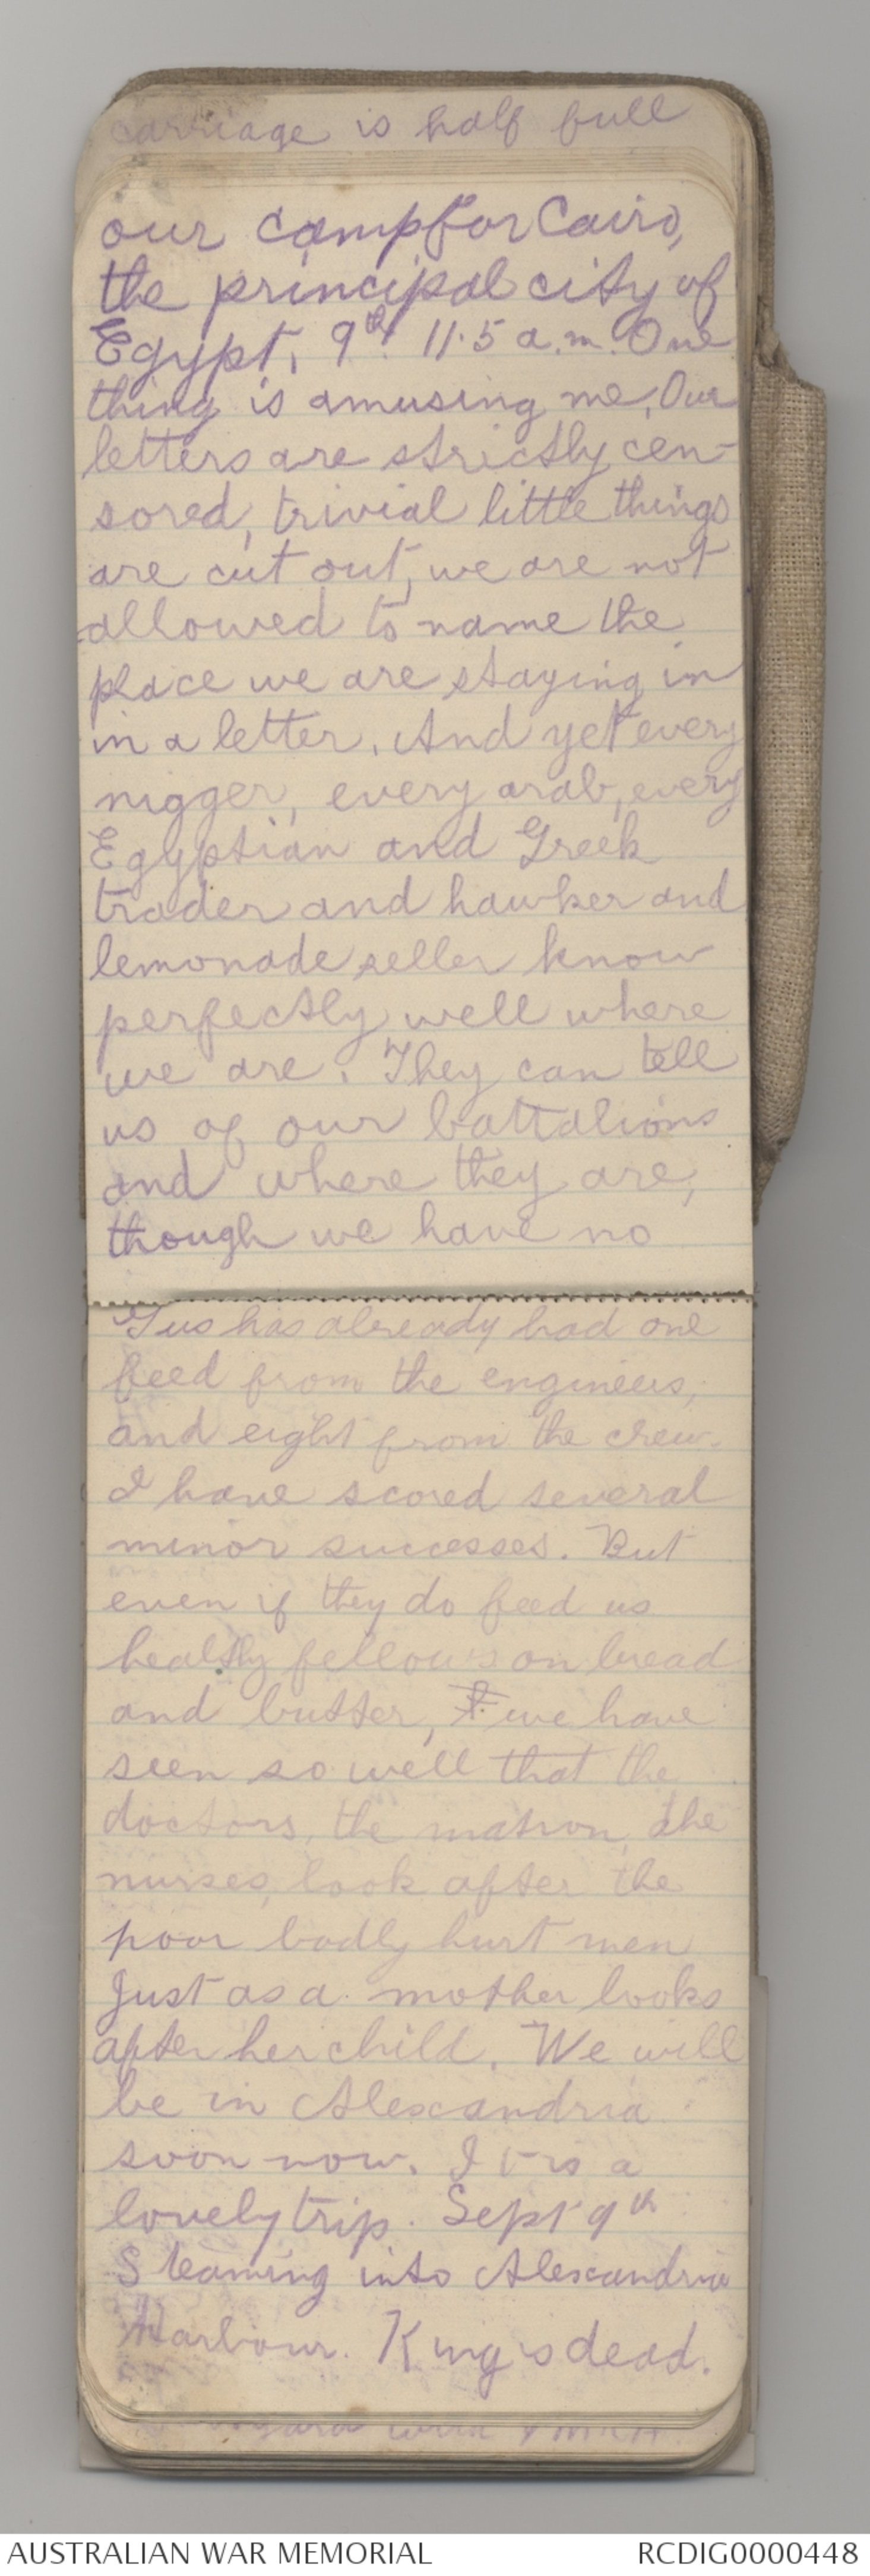 carriage is half full
our camp for Cairo,
the principal city of
Egypt, 9th 11.5 a.m. One
thing is amusing me, Our
letters are strictly cen-
sored, trivial little things
are cut out, we are not
allowed to name the
place we are staying in
in a letter. And yet every
nigger, every arab, every
Egyptian and Greek
trader and hawker and
lemonade seller know
perfectly well where
we are. They can tell
us of our battalions
and where they are,
though we have no
Gus has already had one
feed from the engineers,
and eight from the crew.
I have scored several
minor successes. But
even if they do feed us
healthy fellows on bread
and butter, we have
seen so well that the
doctors, the matron, the
nurses, look after the
poor badly hurt men
Just as a mother looks
after her child. We will
be in Alexandria
soon now. It is a
lovely trip. Sept 9th
Steaming into Alexandria
Harbour. King is dead.
AUSTRALIAN WAR MEMORIAL
RCDIG0000448